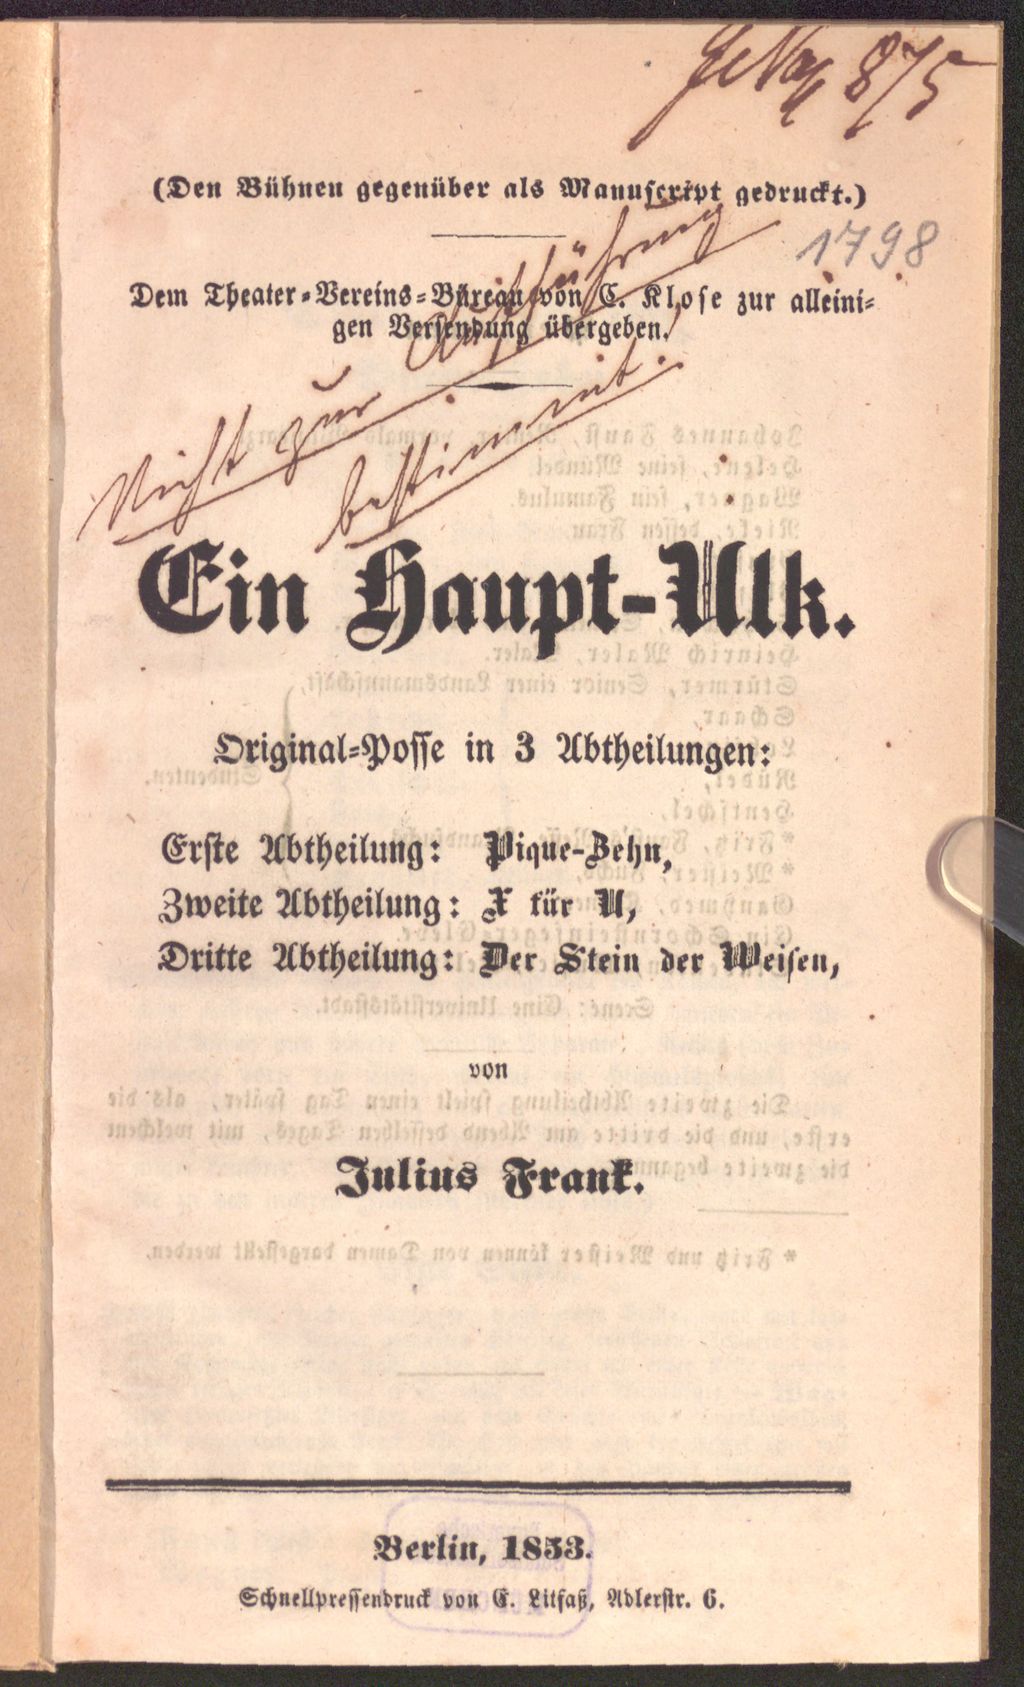 875
(Den Bühnen gegenüber als Manuscript gedruckt.)
1798
Dem Theater-Vereins-Büreau von C. Klose zur alleini-
gen Versendung übergeben.
Nicht zur Aufführung
bestimmt.
Ein Haupt-Ulk.
Original-Posse in 3 Abtheilungen:
Erste Abtheilung: Pique-Zehn,
Zweite Abtheilung: X für U,
Dritte Abtheilung: Der Stein der Weisen,
von
Julius Frank.
Berlin, 1853.
Schnellpressendruck von E. Litfaß, Adlerstr. 6.